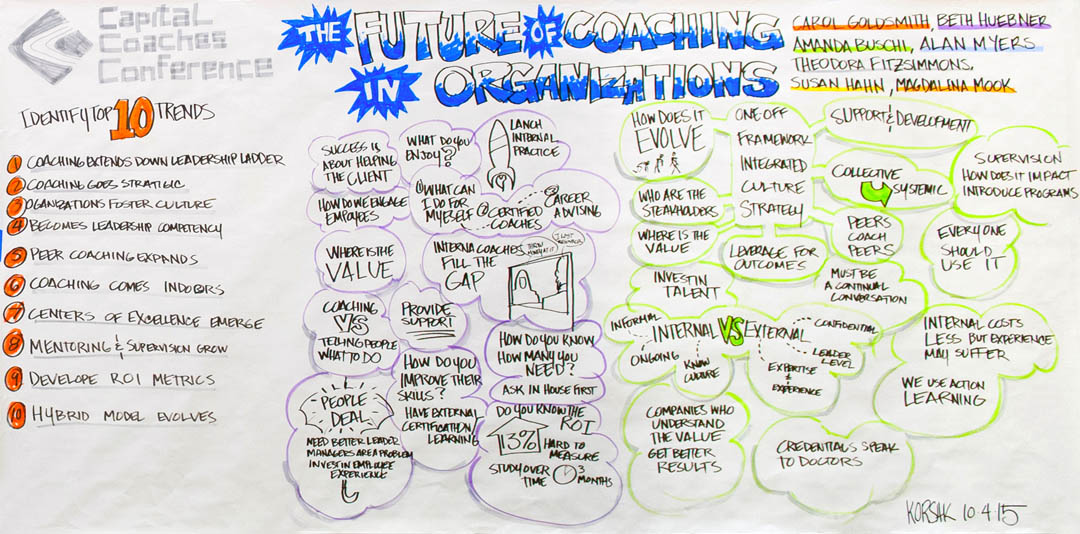 Capital
Coaches
Conference
THE FUTURE OF COACHING
IN ORGANIZATIONS
CAROL GOLDSMITH, BETH HUEBNER
AMANDA BUSCHI, ALAN MYERS
THEODORA FITZSIMMONS,
SUSAN HAHN, MAGDALINA MOOK
IDENTIFY TOP 10 TRENDS
1 COACHING EXTENDS DOWN LEADERSHIP LADDER
2 COACHING GOES STRATIGIC
3 OGANIZATIONS FOSTER CULTURE
4 BECOMES LEADERSHIP COMPETENCY
5 PEER COACHING EXPANDS
6 COACHING COMES INDOORS
7 CENTERS OF EXCELLENCE EMERGE
8 MENTORING & SUPERVISION GROW
9 DEVELOPE ROI METRICS
10 HYBRID MODEL EVOLVES
SUCCESS IS
ABOUT HELPING
THE CLIENT
WHAT DO YOU
ENJOY?
LANCH
INTERNAL
PRACTICE
HOW DO WE ENGAGE
EMPOYEES
1 WHAT CAN
I DO FOR
MYESELF
2 CERTIFIED
COACHES
3 CAREER
ADVISING
WHERE IS THE
VALUE
INTERNA COACHES
FILL THE
GAP
THROW
MONEY AT IT
COACHING
VS
TELLING PEOPLE
WHAT TO DO
PROVIDE
SUPPORT
HOW DO YOU KNOW
HOW MANY YOU
NEED?
ASK IN HOUSE FIRST
HOW DO YOU
IMPROVE THEIR
SKILLS?
HAVE EXTERNAL
CERTIFICATION/
LEARNING
PEOPLE
DEAL
NEED BETTER LEADER
MANAGERS ARE A PROBLEM
INVEST IN EMPLOYEE
EXPERIENCE
DO YOU KNOW THE
ROI
13%
HARD TO
MEASURE
STUDY OVER
TIME
3
MONTHS
HOW DOES IT
EVOLVE
ONE OFF
FRAMEWORK
INTEGRATED
CULTURE
STRATEGY
SUPPORT & DEVELOPMENT
WHO ARE THE
STEAKHOLDERS
COLLECTIVE
SYSTEMIC
SUPERVISION
HOW DOES IT IMPACT
INTRODUCE PROGRAMS
WHERE IS THE
VALUE
LEVERAGE FOR
OUTCOMES
PEERS
COACH
PEERS
EVERYONE
SHOULD
USE IT
INVEST IN
TALENT
MUST BE
A CONTINUAL
CONVERSATION
INTERNAL VS EXTERNAL
INFORMAL
ONGOING
KNOW
CULTURE
CONFIDENTIAL
LEADER
LEVEL
EXPERTISE
&
EXPERIENCE
INTERNAL COSTS
LESS BUT EXPERIENCE
MAY SUFFER
WE USE ACTION
LEARNING
COMPANIES WHO
UNDERSTAND
THE VALUE
GET BETTER
RESULTS
CREDENTIALS SPEAK
TO DOCTORS
KORSAK 10.4.15